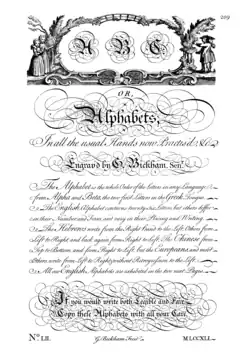 209
A B C,
OR,
Alphabets,
In all the usual Hands now Practis'd &c.
Engrav'd by G. Bickham. Senr.
The Alphabet is the whole Order of the Letters in any Language
from Alpha and Beta, the two first Letters in the Greek Tongue.
The English Alphabet contains twenty four Letters, but others differ
in their Number and Form, and vary in their Placing and Writing.
The Hebrews wrote from the Right Hand to the Left, Others from
Left to Right and back again from Right to Left. The Chinese from
Top to Bottom, and from Right to Left. But the Europeans, and most
Others, wrote from Left to Right, without Retrogression to the Left.
All our English Alphabets are exhibited in the two next Pages.
If you would write both Legible and Fair,
Copy these Alphabets with all your Care.
No. LII.
G. Bickham Fecit
MDCCXLI.